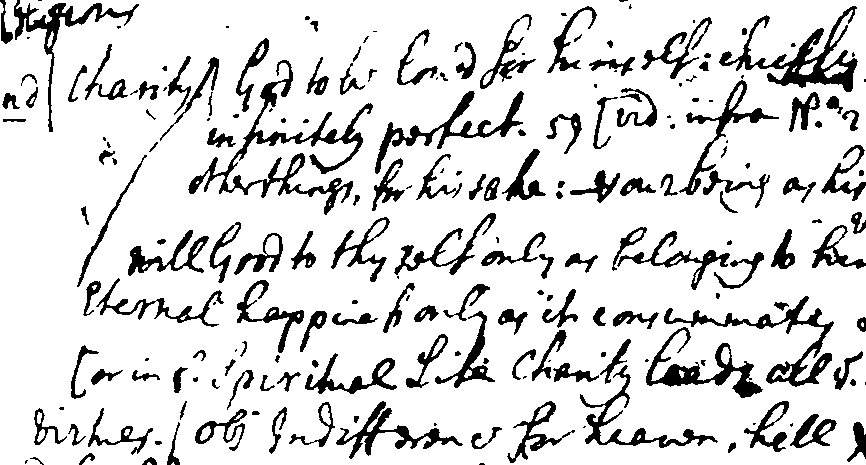 Religions
nd [Charity/] God to be Lou'd for himself: chiefly
infinitely perfect. 59 [vid: infra N.a 2
other things, for his sake: your being as his
will Good to thy self only as belonging to him
Eternal happiness only as it consummates
[or in ye Spiritual Life Charity leads all ye
virtues. / obj Indifference for heaven, hell